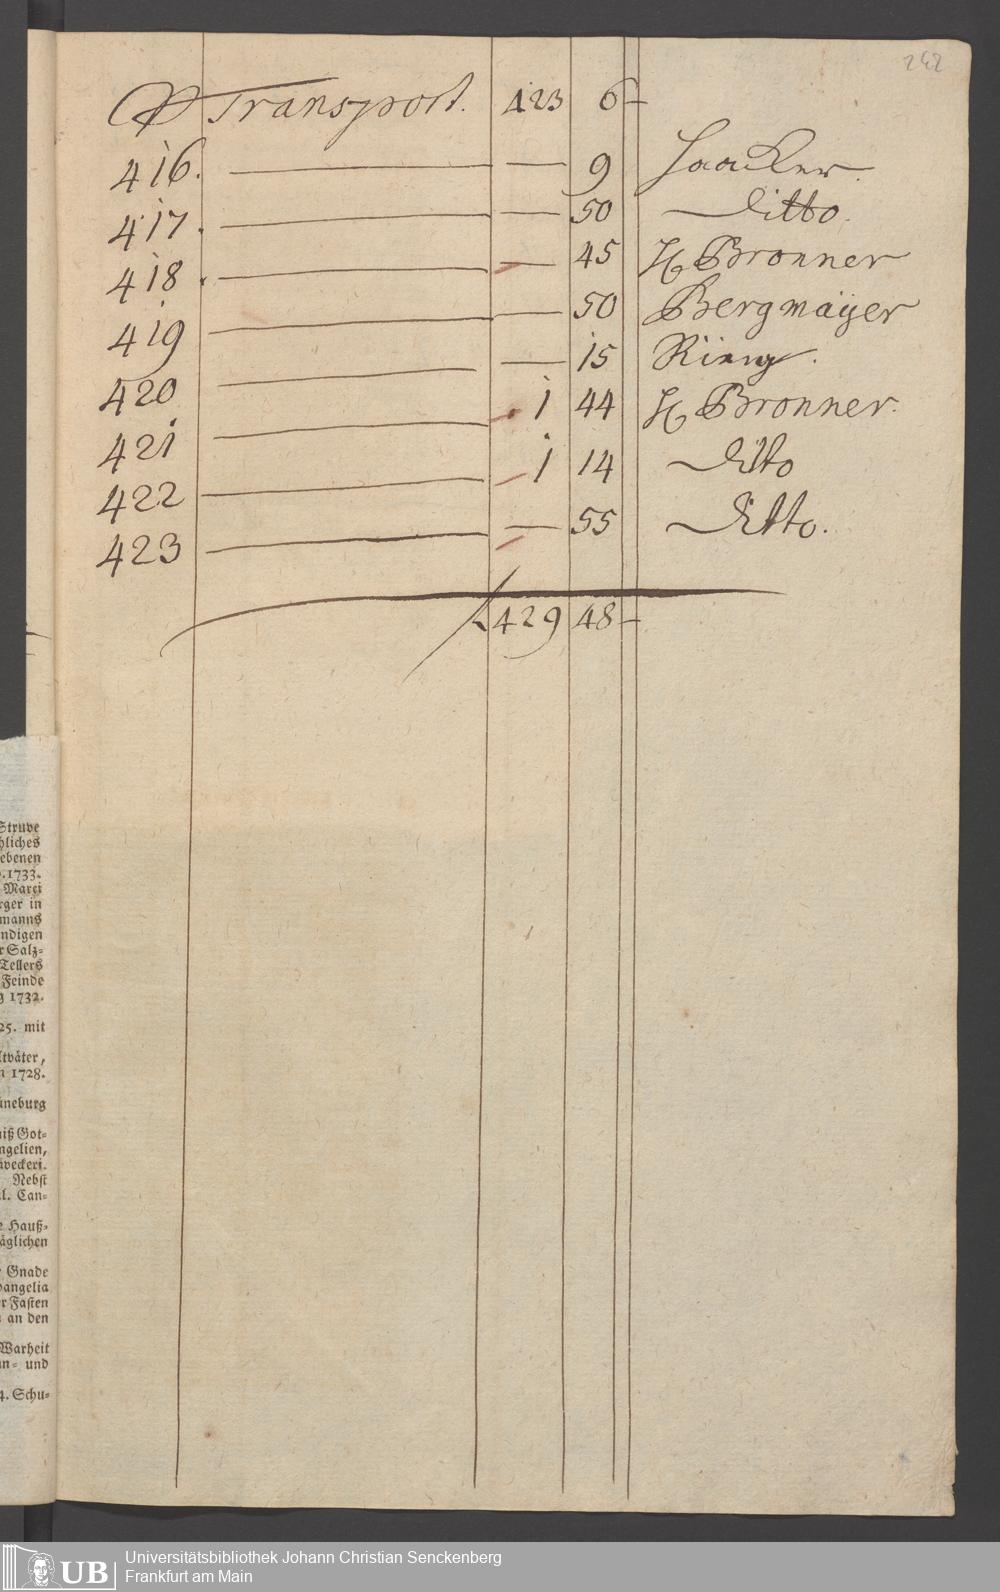 242
Transport. 423 6 —
416. — — 9 Haacker.
417. — — 50 Ditto.
418. — — 45 H. Bronner
419 — — 50 Bergmaÿer
420 — — 15
421 — 1 44 H. Bronner.
422 — 1 14 Ditto
423 — — 55 Ditto.
429 48 —
Struve
hliches
ebenen
.1733.
Marci
rger in
manns
ndigen
r Salz-
Tellers
Feinde
g 1732.
25. mit
ltväter,
n 1728.
üneburg
niß Got-
ngelien,
äveckeri.
Nebst
l. Can-
e Hauß-
äglichen
r Gnade
vangelia
r Fasten
an den
Warheit
an- und
4. Schu-
UB Universitätsbibliothek Johann Christian Senckenberg
Frankfurt am Main